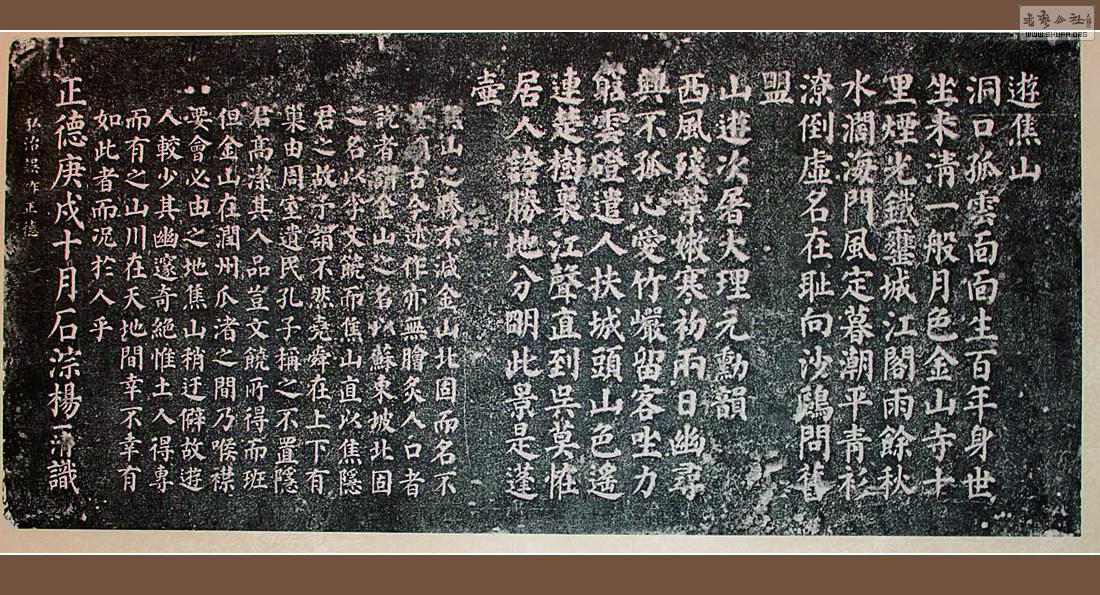 遊焦山
洞口孤雲面面生百年身世
坐來淸一般月色金山寺十
里煙光鐵甕城江閣雨餘秋
水濶海門風定暮潮平青衫
潦倒虛名在耻向沙鷗問舊
盟
山遊次屠大理元勳韻
西風殘葉嫩寒初兩日幽尋
興不孤心愛竹巖留客坐力
窮雲磴遣人扶城頭山色遙
連楚樹裏江聲直到吳莫恠
居人誇勝地分明此景是蓬
壺
焦山之勝不減金山北固而名不
古今述作亦無膾炙人口者
說者謂金山之名以蘇東坡北固
之名以李文饒而焦山直以焦隱
君之故予謂不然堯舜在上下有
巢由周室遺民孔子稱之不置隱
君高潔其人品豈文饒所得而班
但金山在潤州瓜渚之間乃喉襟
要會必由之地焦山稍迂僻故遊
人較少其幽邃奇絕惟土人得專
而有之山川在天地間幸不幸有
如此者而況於人乎
正德庚戌十月石淙楊一清識
弘治誤作正德
WWW.SHUFA.ORG